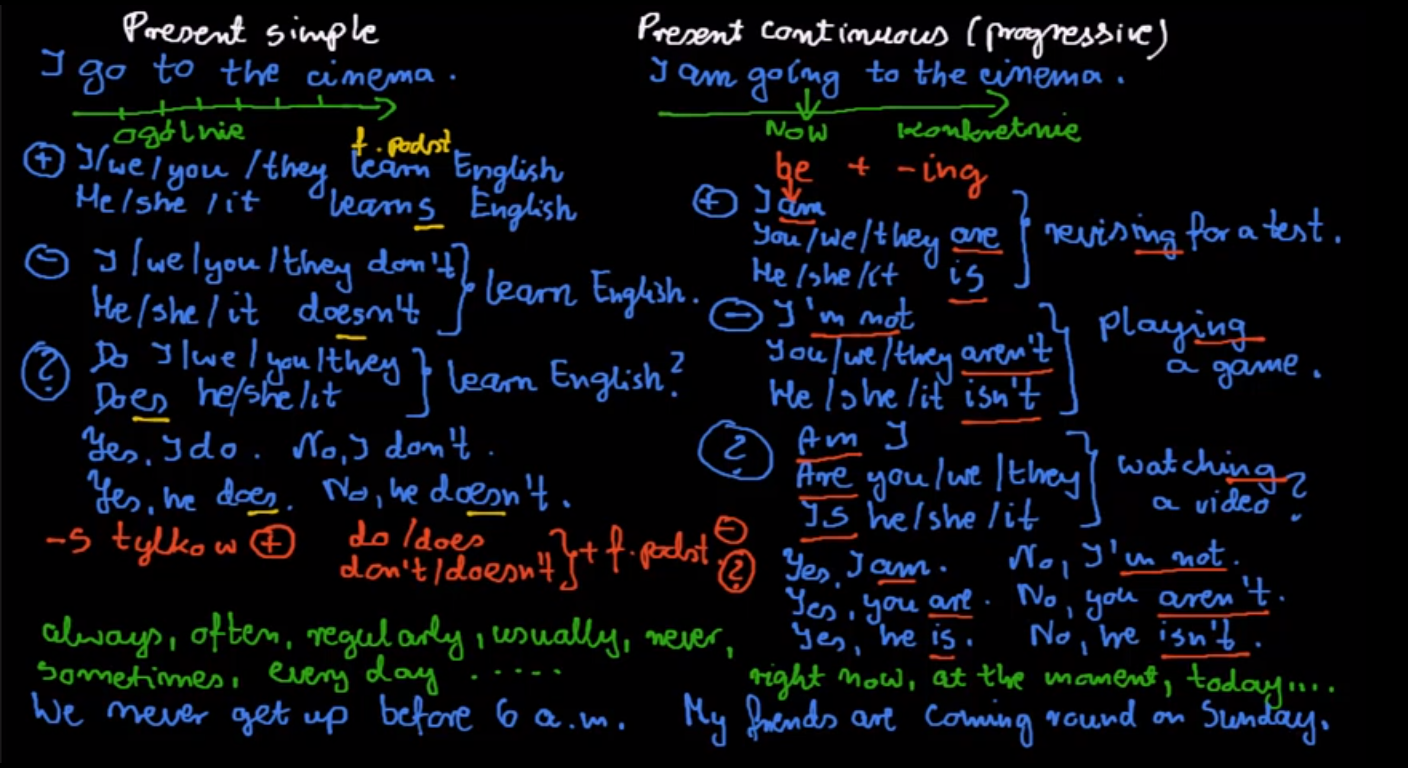 Present simple
I go to the cinema.
ogólnie
f. podst
+ I/we/you/they learn English
He/she/it learns English
- I/we/you/they don't
He/she/it doesn't
learn English.
? Do I/we/you/they
Does he/she/it
learn English?
Yes, I do. No, I don't.
Yes, he does. No, he doesn't.
-s tylko w +
do/does
don't/doesn't
+ f. podst. - ?
always, often, regularly, usually, never,
sometimes, every day ......
We never get up before 6 a.m.
Present continuous (progressive)
I am going to the cinema.
NOW konkretnie
be + -ing
+ I am
You/we/they are
He/she/it is
revising for a test.
- I'm not
You/we/they aren't
He/she/it isn't
playing
a game.
? Am I
Are you/we/they
Is he/she/it
watching
a video?
Yes, I am. No, I'm not.
Yes, you are. No, you aren't.
Yes, he is. No, he isn't.
right now, at the moment, today....
My friends are coming round on Sunday.